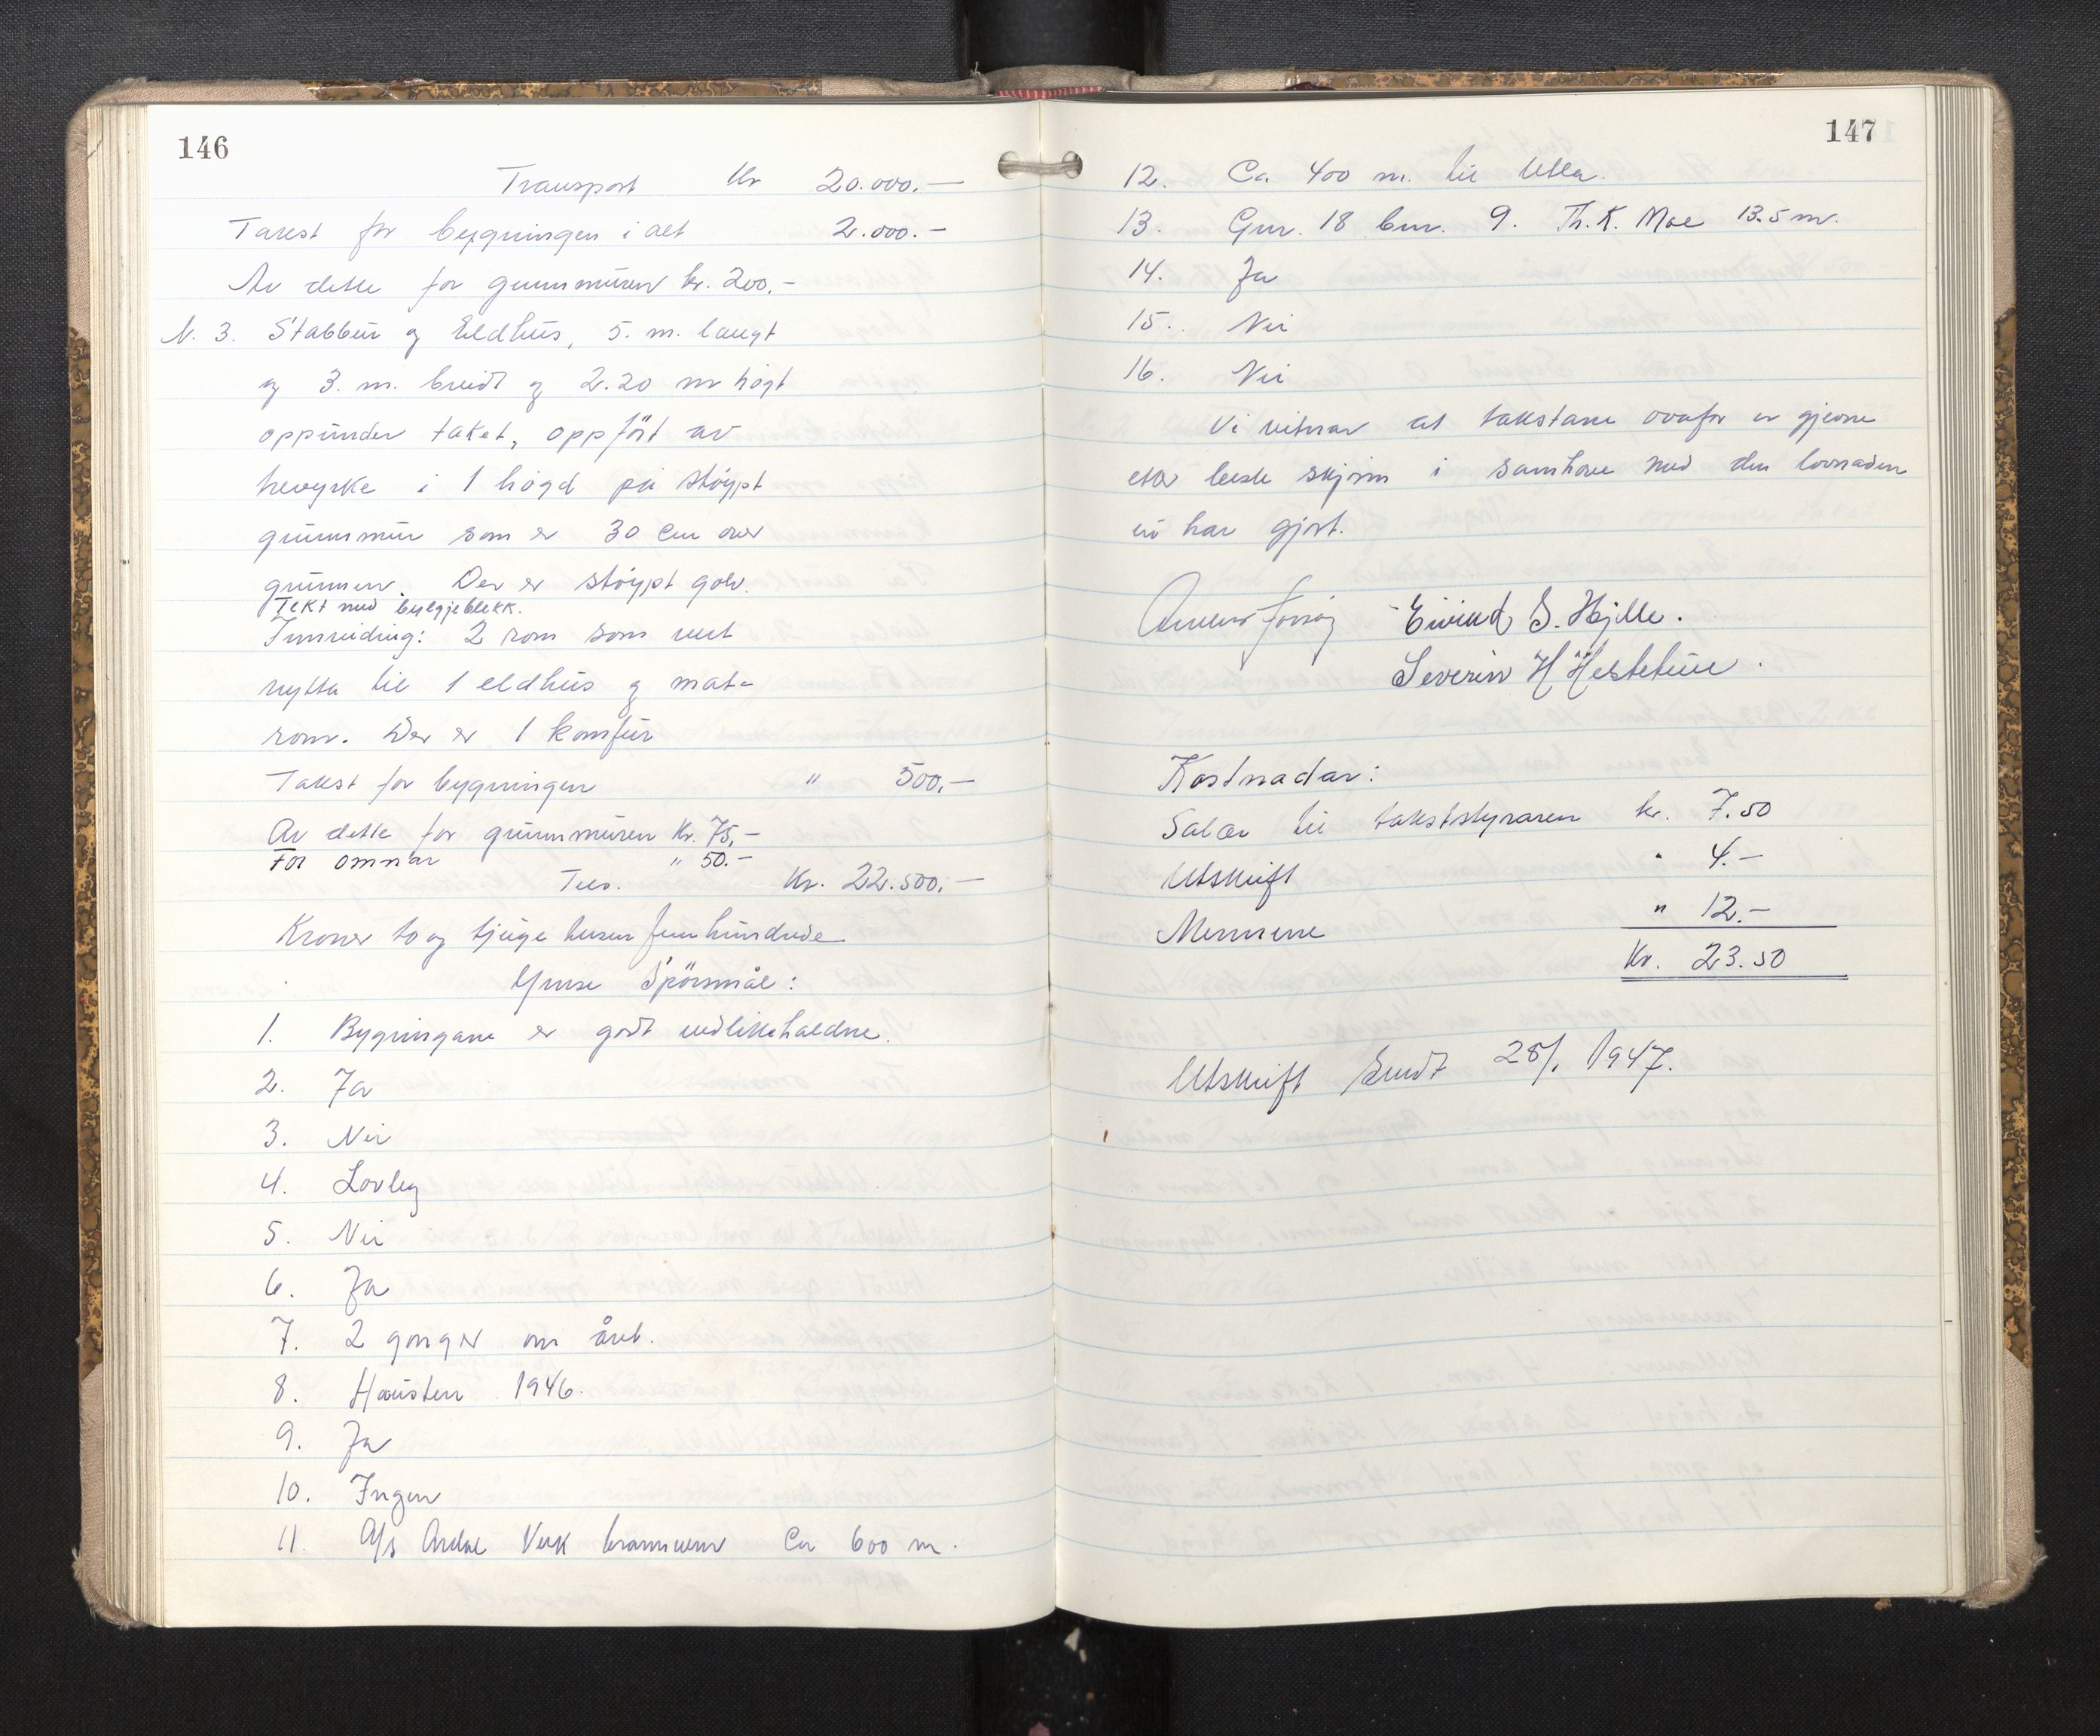 146
Transport Kr 20.000.—
Takst for bygningen i alt 2.000.—
Av dette for grunnmuren kr. 200.—
N. 3. Stabbur og Eldhus, 5. m. langt
og 3. m. breidt og 2.20 m högt
oppunder taket, oppfört av
trevyrke i 1 högd på stöypt
grunnmur som er 30 cm over
grunnen. Der er stöypt golv.
Tekt med bylgjeblekk.
Innreiding: 2 rom som vert
nytta til 1 eldhus og mat-
rom. Der er 1 komfur
Takst for bygningen " 500,—
Av dette for grunnmuren Kr. 75,—
For omnar " 50.—
Tils. Kr. 22.500,—
Kroner to og tjuge tusen fem hundrede
Ymse Spörsmål:
1. Bygningane er godt vedlikehaldne.
2. Ja
3. Nei
4. Lovleg
5. Nei
6. Ja
7. 2 gonger om året.
8. Hausten 1946.
9. Ja
10. Ingen
11. A/s Årdal Verk brannvern Ca 600 m.
147
12. Ca. 400 m. til Utla.
13. Gnr. 18 bnr. 9. Th. K. Moe 13.5 m.
14. Ja
15. Nei
16. Nei
Vi vitnar at takstane ovafor er gjevne
etter beste skjønn i samhøve med den lovnaden
vi har gjort.
Eivind S. Hjelle.
Severin H Hestetun.
Kostnadar:
Salær til takststyraren kr. 7.50
Utskrift " 4.—
Mennene " 12.—
Kr. 23.50
Utskrift sendt 28/1 1947.